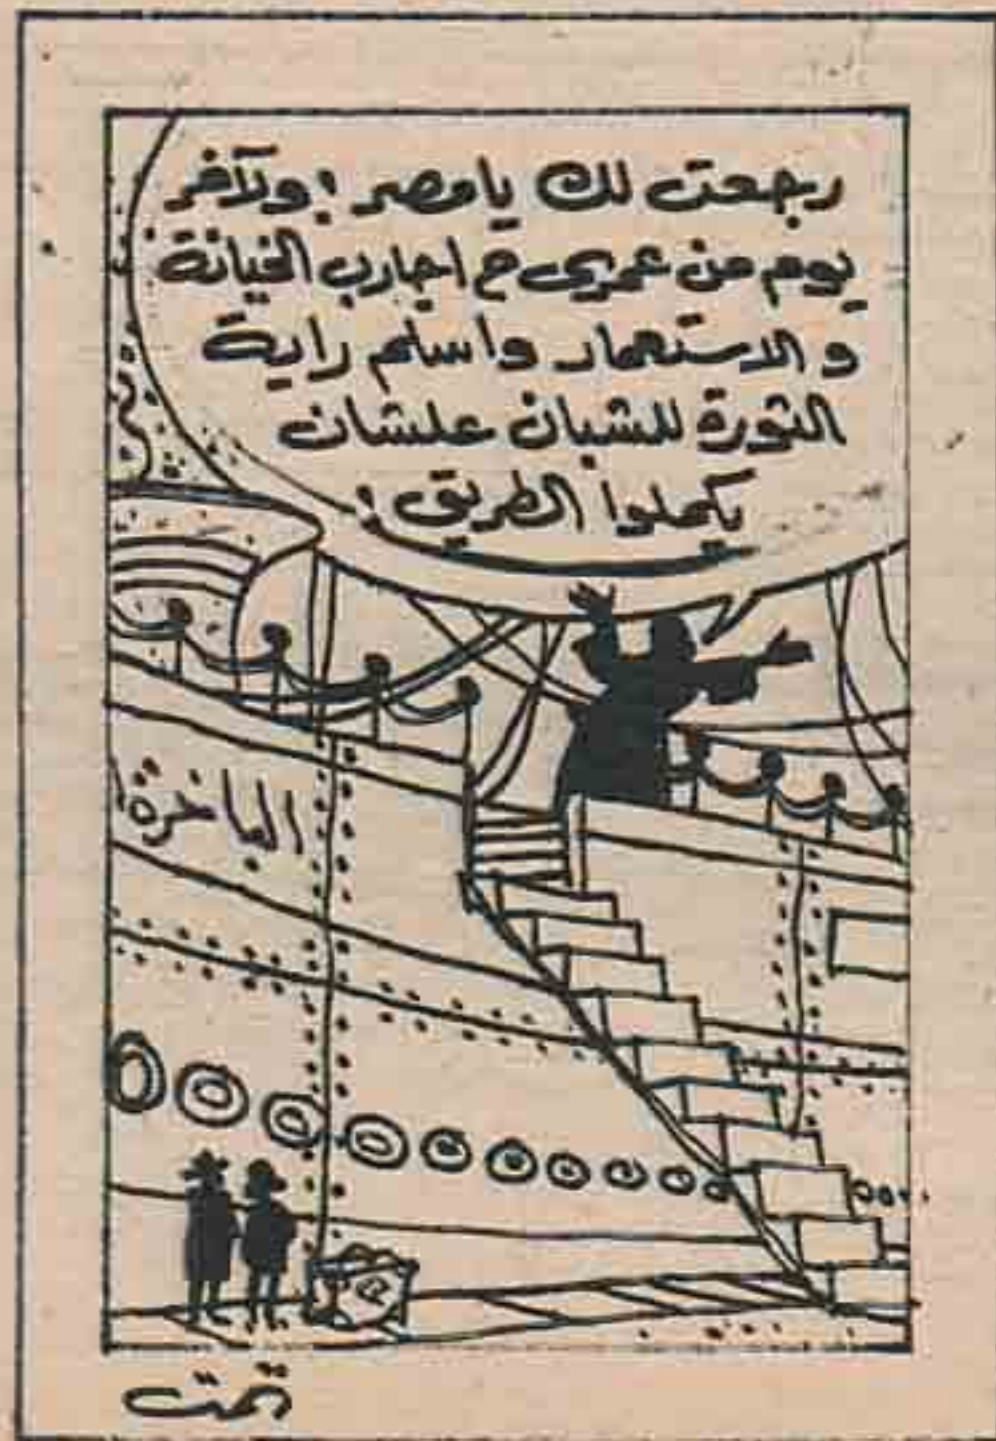 رجعت لك يا مصر! ولآخر
يوم من عمري ح احارب الخيانة
والاستعمار واسلم راية
الثورة للشبان علشان
يكملوا الطريق!
الباخرة
تمت